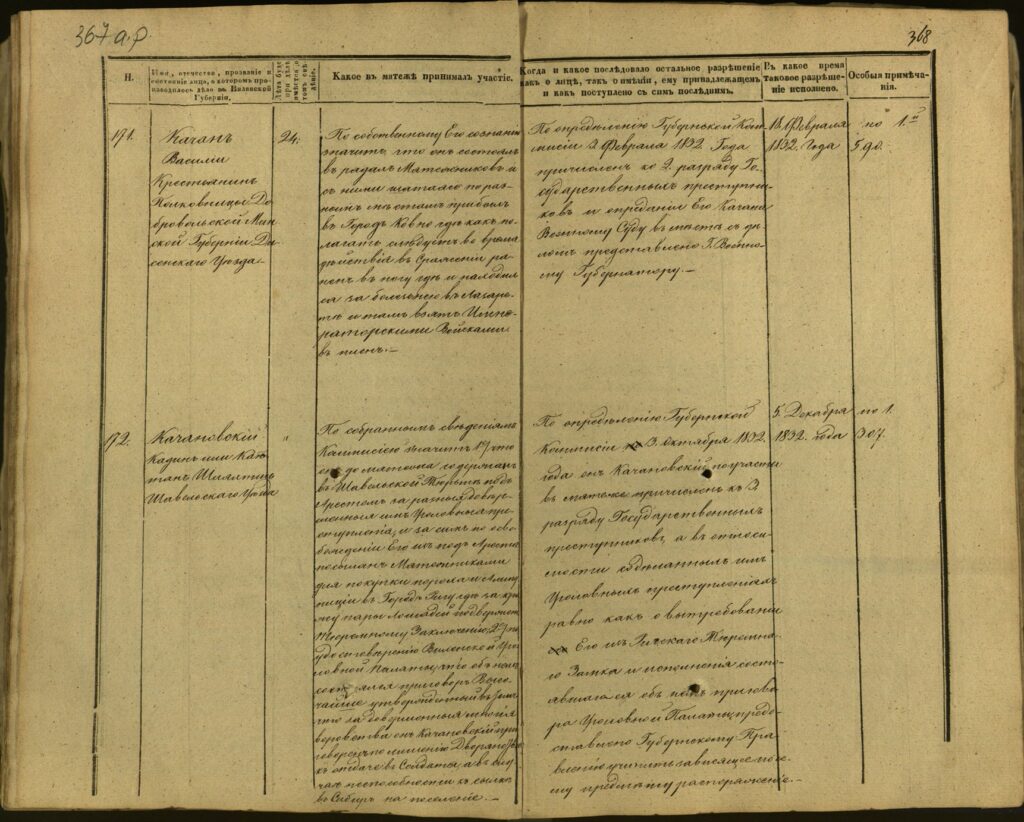 367 а.р.
368
Н.
Имя, отечество, прозваніе и
состояніе лица, о которомъ про-
изводилось дѣло въ Виленской
Губерніи.
Какое въ мятежѣ принималъ участіе.
Когда и какое послѣдовало остальное разрѣшеніе
какъ о лицѣ, такъ о имѣніи, ему принадлежащемъ
и какъ поступлено съ симъ послѣднимъ.
Въ какое время
таковое разрѣше-
ніе исполнено.
Особыя примѣча-
нія.
171.
Качанъ
Василій
Крестьянинъ
Полковницы До-
бровольской Мин-
ской Губерніи Ди-
сенскаго Уѣзда.
24.
По собственному Его сознанію
значитъ, что онъ состоялъ
въ рядахъ Мятежниковъ и
съ ними шатаясь по раз-
нымъ мѣстамъ прибылъ
въ Городъ Ковно гдѣ какъ по-
лагать слѣдуетъ во время
дѣйствія въ Сраженіи ра-
ненъ въ ногу гдѣ и находил-
ся за болезнею въ Лазаре-
тѣ и тамъ взятъ Импе-
раторскими Войсками
въ пленъ.—
По опредѣленію Губернской Ком-
мисіи 2 Февраля 1832 Года
причисленъ ко 2 разряду Го-
сударственныхъ преступни-
ковъ и опредания Его Качана
Военному Суду вместѣ съ дѣ-
ломъ представлено Г. Военно-
му Губернатору.—
18 Февраля
1832 Года
по 1.й
590.
172.
Качановскій
Кадинъ или Кае-
танъ Шляхтичь
Шавельскаго Уѣзда
"
По собраннымъ свѣдениямъ
Каммисіею значитъ 1) что
онъ до мятежа содержанъ
въ Шавельской Тюрьмѣ подъ
Арестомъ за разныя довер-
шенныя имъ Уголовныя пре-
ступленія, и за симъ по осво-
божденіи Его изъ подъ Ареста
посыланъ Мятежниками
для покупки пороха и Аму-
ниціи въ Городъ Ригу гдѣ за кра-
жу пары Лошадей подверженъ
Тюремному Заключенію, 2) по
удостовѣренію Виленской Уго-
ловной Палаты, что объ немъ
состоялся приговоръ Высо-
чайше утвержденный въ
что за довершенныя многія
воровства онъ Качановскій при-
говоренъ по лишенію Дворянства
къ отдаче въ Солдаты, а въ слу-
чаѣ неспособности къ сылкѣ
въ Сибирь на поселеніе.—
По опредѣленію Губернской
Коммисіи 3 Октября 1832
года онъ Качановскій по участи
въ мятеже причисленъ къ 2
разряду Государственныхъ
преступниковъ, а въ относи-
мости содѣланнымъ имъ
Уголовнымъ преступленіямъ
равно какъ о вытребовании
Его изъ Рижскаго Тюремна-
го Замка и исполненія состо-
явшагося объ немъ пригово-
ра Уголовной Палаты, предо-
ставлено Губернскому Пра-
вленію учинить зависящее по се-
му предмѣту распоряженіе.—
5. Декабря
1832. года
по 1.
307.